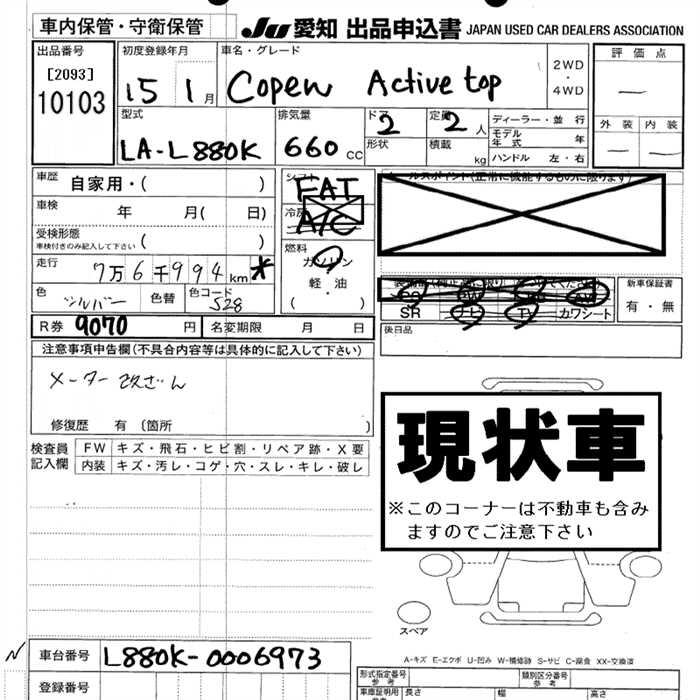 車内保管・守衛保管 JU 愛知 出品申込書 JAPAN USED CAR DEALERS ASSOCIATION
出品番号 初度登録年月 車名・グレード 2WD ・ 4WD 評価点
[2093]
10103 15 1月 Copen Active top —
型式 排気量 ドア 定員 ディーラー・並行 外装 内装
LA-L880K 660cc 2 2人 モデル年式 年 — —
形状 積載 kg ハンドル 左・右
車歴 自家用・( ) シフト FAT
車検 年 月( 日) 冷房 A/C
受検形態 ( )
車検付きのみ記入して下さい
燃料 ガソリン
走行 7万6千994km *
軽・油
( )
色 シルバー 色替 色コード S28
新車保証書
有・無
SR ナビ TV カワシート
R券 9070 円 名変期限 月 日
後日品
注意事項申告欄(不具合内容等は具体的に記入して下さい)
メーター改ざん
修復歴 有 〔箇所 〕
検査員記入欄 FW キズ・飛石・ヒビ割・リペア跡・X要
内装 キズ・汚レ・コゲ・穴・スレ・キレ・破レ
現状車
※このコーナーは不動車も含み
ますのでご注意下さい
スペア
A-キズ E-エクボ U-凹み W-補修跡 S-サビ C-腐食 XX-交換済
車台番号 L880K-0006973
登録番号
形式指定番号 参考 類別区分番号 参考
車庫証明用 参考 長さ 幅 高さ